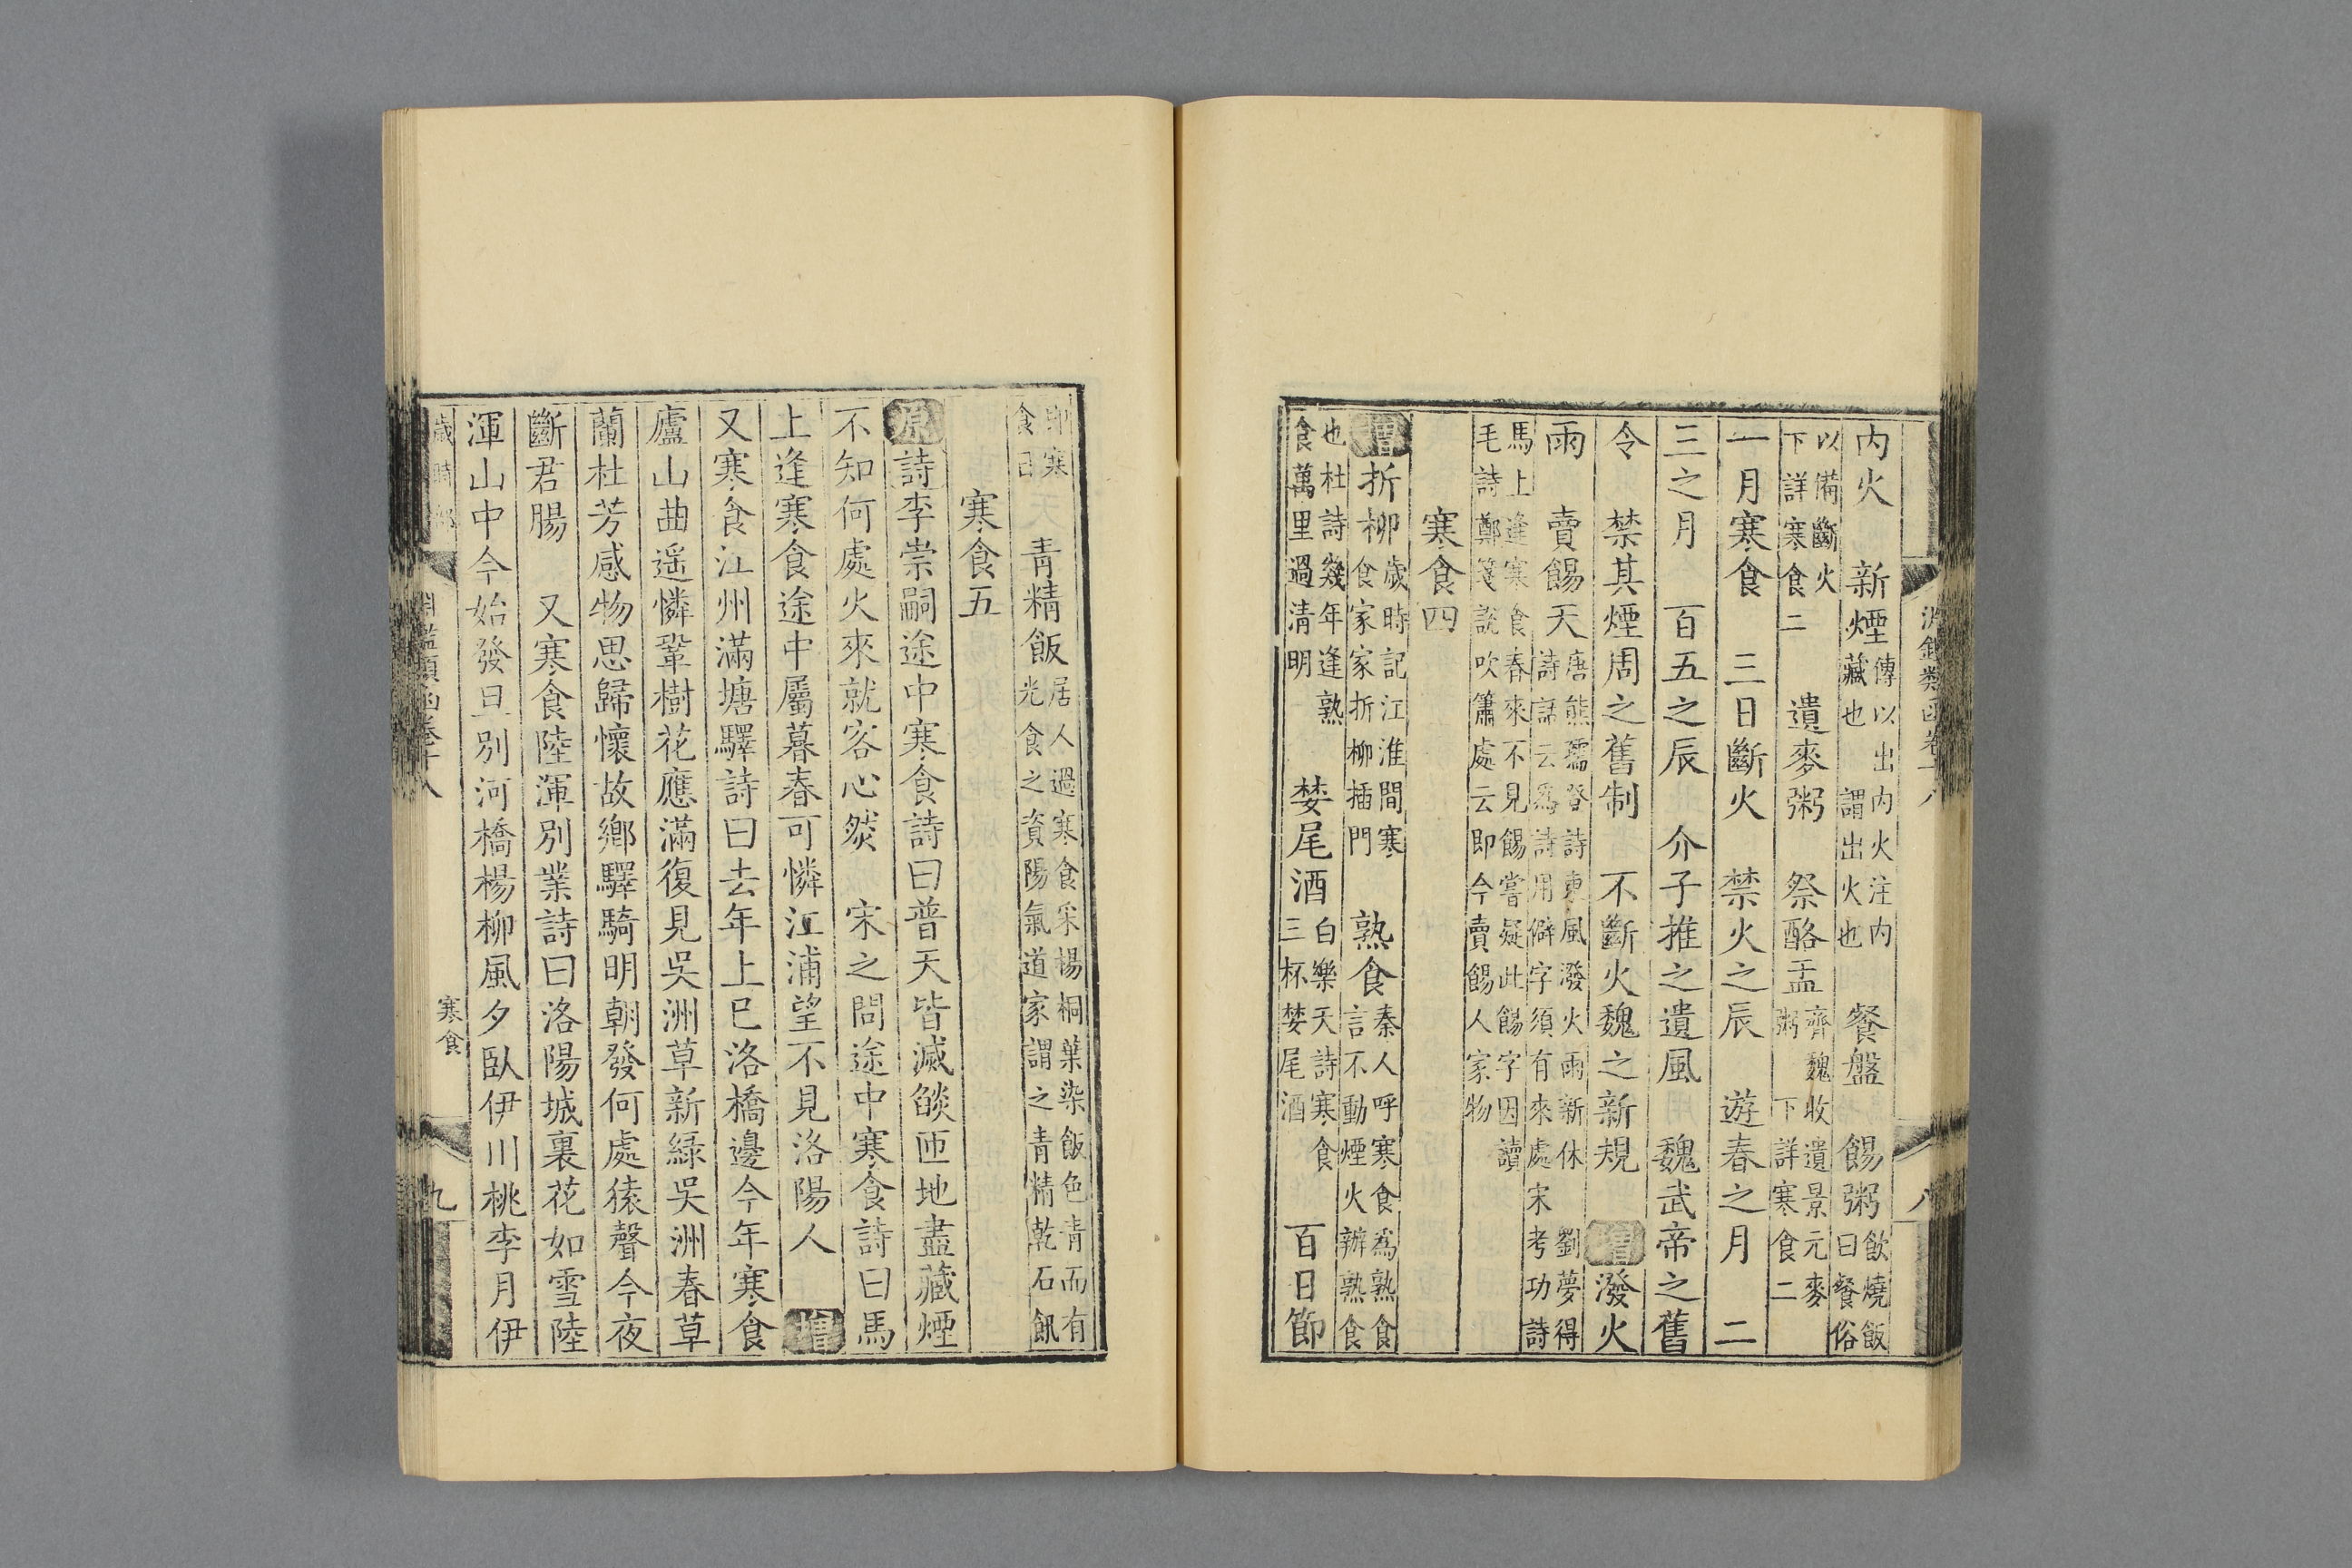 淵鑑類函卷十八 八
内火 新煙傳以出内火注内藏也謂出火也 餐盤 餳粥飲燒飯曰餐俗
以備斷火下詳寒食二 遺麥粥 祭酪盂齊魏收遺景元麥粥下詳寒食二
一月寒食 三日斷火 禁火之辰 遊春之月 二
三之月 百五之辰 介子推之遺風 魏武帝之舊
令 禁其煙周之舊制 不斷火魏之新規 增潑火
雨 賣餳天唐熊孺登詩東風潑火雨新休 劉夢得詩話云爲詩用僻字須有來處宋考功詩
馬上逢寒食春來不見餳嘗疑此餳字因讀毛詩鄭箋說吹簫處云即今賣餳人家物
寒食四
增折柳歲時記江淮間寒食家家折柳插門 熟食秦人呼寒食爲熟食言不動煙火辦熟食
也杜詩幾年逢熟食萬里過清明 婪尾酒白樂天詩寒食三杯婪尾酒 百日節
即寒食日 青精飯居人遇寒食采楊桐葉染飯色青而有光食之資陽氣道家謂之青精乾石飿
寒食五
原詩李崇嗣途中寒食詩曰普天皆滅燄匝地盡藏煙
不知何處火來就客心燃 宋之問途中寒食詩曰馬
上逢寒食途中屬暮春可憐江浦望不見洛陽人 增
又寒食江州滿塘驛詩曰去年上巳洛橋邊今年寒食
廬山曲遥憐鞏樹花應滿復見吳洲草新緑吳洲春草
蘭杜芳感物思歸懷故鄉驛騎明朝發何處猿聲今夜
斷君腸 又寒食陸渾別業詩曰洛陽城裏花如雪陸
渾山中今始發旦別河橋楊柳風夕臥伊川桃李月伊
歲時部 淵鑑類函卷十八 寒食 九